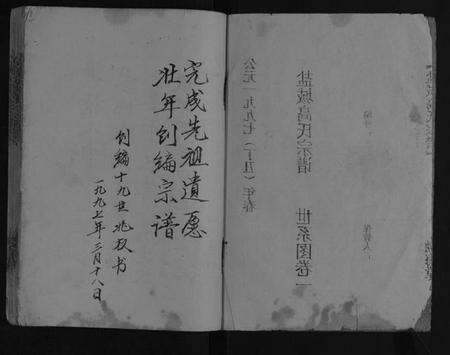 完成先祖遺愿
壮年创编宗谱
创编十九世兆权书
一九九七年三月十八日
公元一九九七（丁丑）年春
盐城高氏宗谱 世系图卷一